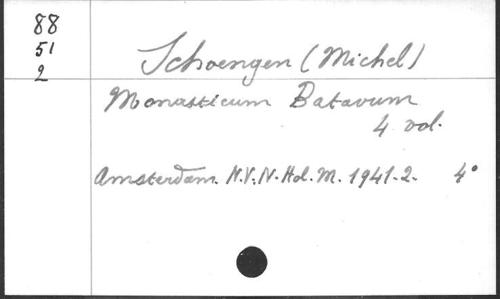 88
51
2
Schoengen (Michel)
Monasticum Batavum
4 vol.
Amsterdam. N.V. N. Hol. M. 1941-2. 4°